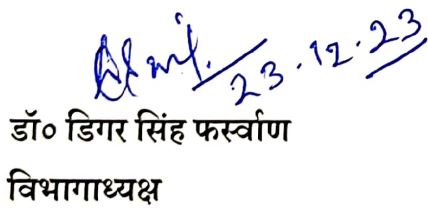 23.12.23
डॉ० डिगर सिंह फर्स्वाण
विभागाध्यक्ष